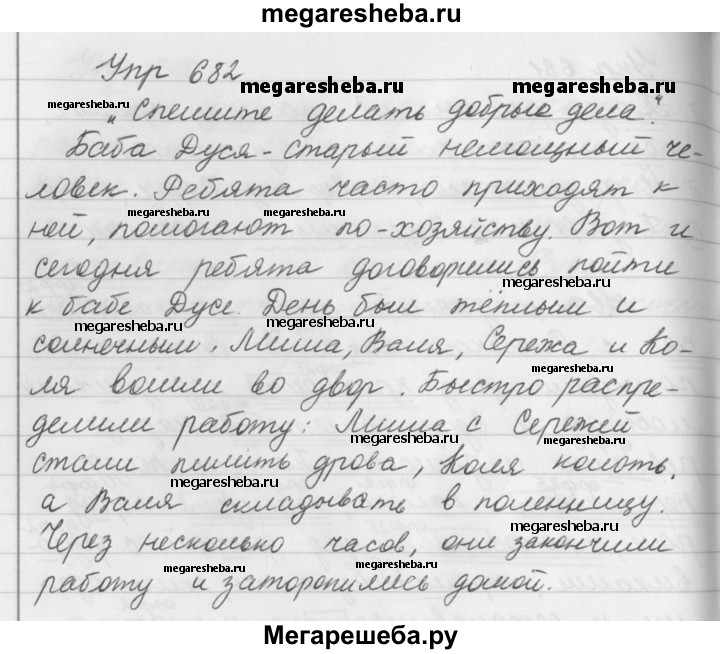 megaresheba.ru
Упр 682
megaresheba.ru megaresheba.ru
megaresheba.ru
„Спешите делать добрые дела".
Баба Дуся - старый немощный че-
ловек. Ребята часто приходят к
megaresheba.ru megaresheba.ru
ней, помогают по-хозяйству. Вот и
сегодня ребята договорились пойти
к бабе Дусе. День был тёплым и
megaresheba.ru megaresheba.ru
солнечным. Миша, Валя, Сережа и Ко-
megaresheba.ru
ля вошли во двор. Быстро распре-
делили работу: Миша с Сережей
megaresheba.ru megaresheba.ru
стали пилить дрова, Коля колоть,
megaresheba.ru
а Валя складывать в поленницу.
megaresheba.ru
Через несколько часов, они закончили
megaresheba.ru megaresheba.ru
работу и заторопились домой.
Мегарешеба.ру